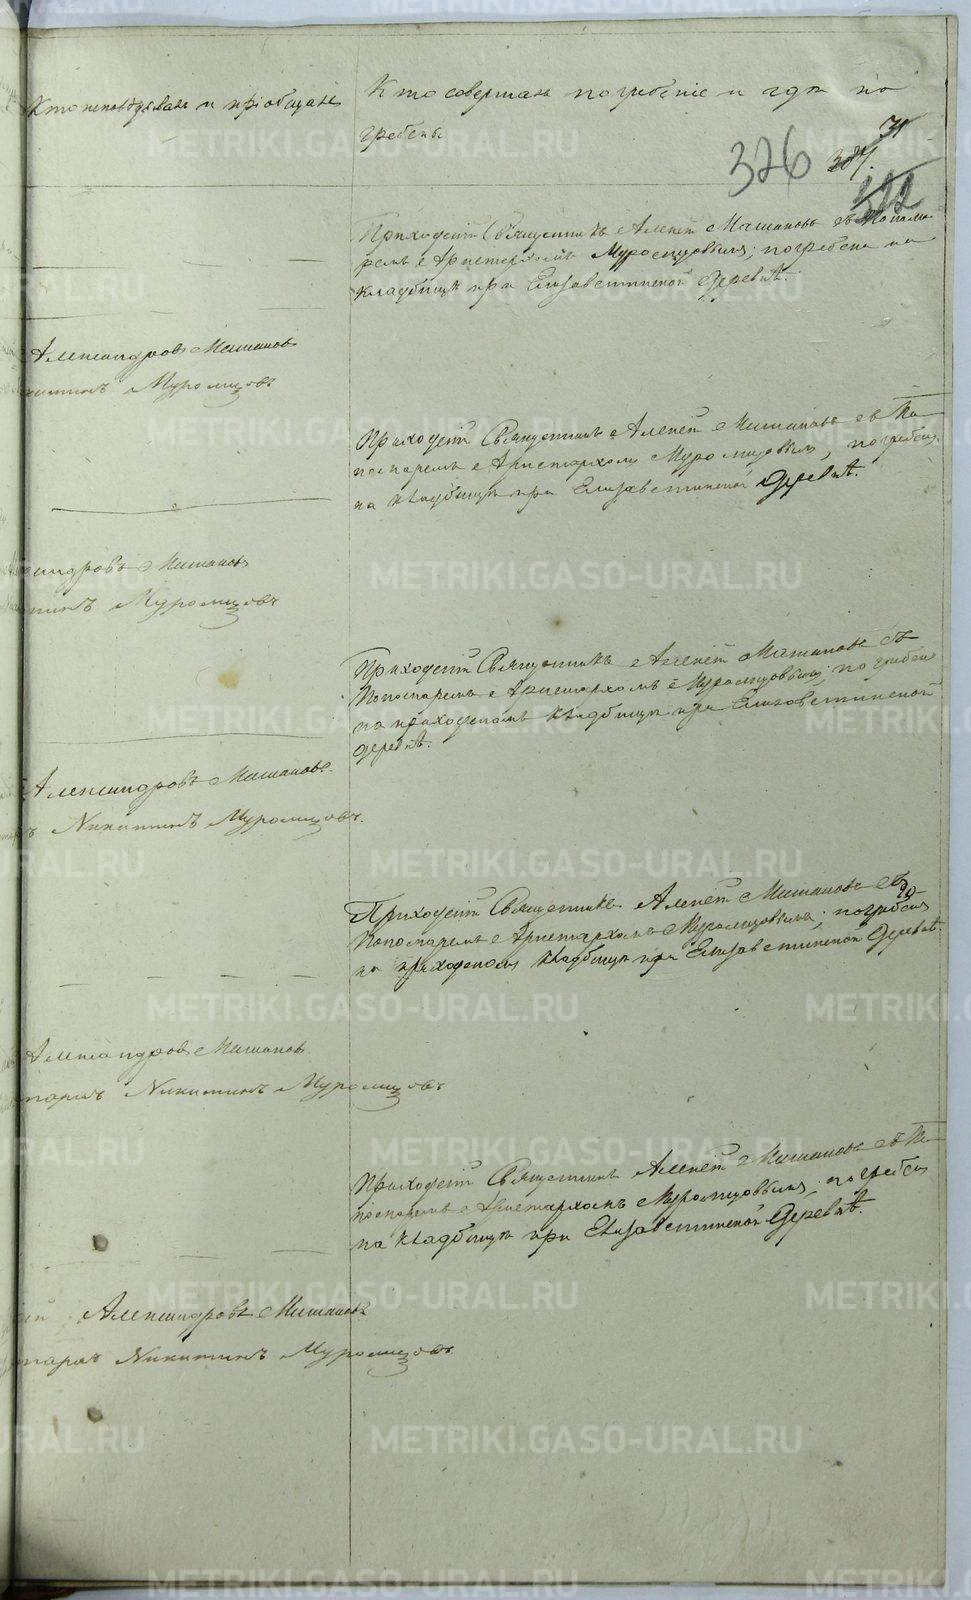 Кто исповѣдывалъ и пріобщалъ
Кто совершалъ погребеніе и гдѣ по
гребены
31
326
322
Приходскій Священникъ Алексѣй Машановъ съ Понома
ремъ Аристархомъ Муромцовымъ; погребена на
кладбищѣ при Елизаветинской деревнѣ.
Александровъ Машановъ
Муромцовъ
Приходскій Священникъ Алексѣй Машановъ съ По
номаремъ Аристархомъ Муромцовымъ, погребенъ
на кладбищѣ при Елизаветинской деревнѣ.
андровъ Машановъ
Муромцовъ
Приходскій Священникъ Алексѣй Машановъ съ
Пономаремъ Аристархомъ Муромцовымъ; погребенъ
на приходскомъ кладбищѣ при Елизаветинской
деревнѣ.
Александровъ Машановъ.
Никитинъ Муромцовъ.
Приходскій Священникъ Алексѣй Машановъ съ
Пономаремъ Аристархомъ Муромцовымъ; погребенъ
на приходскомъ кладбищѣ при Елизаветинской деревнѣ.
Александровъ Машановъ
Никитинъ Муромцовъ
Приходскій Священникъ Алексѣй Машановъ съ По
номаремъ Аристархомъ Муромцовымъ; погребенъ
на кладбищѣ при Елизаветинской деревнѣ.
Александровъ Машановъ
Никитинъ Муромцовъ
METRIKI.GASO-URAL.RU